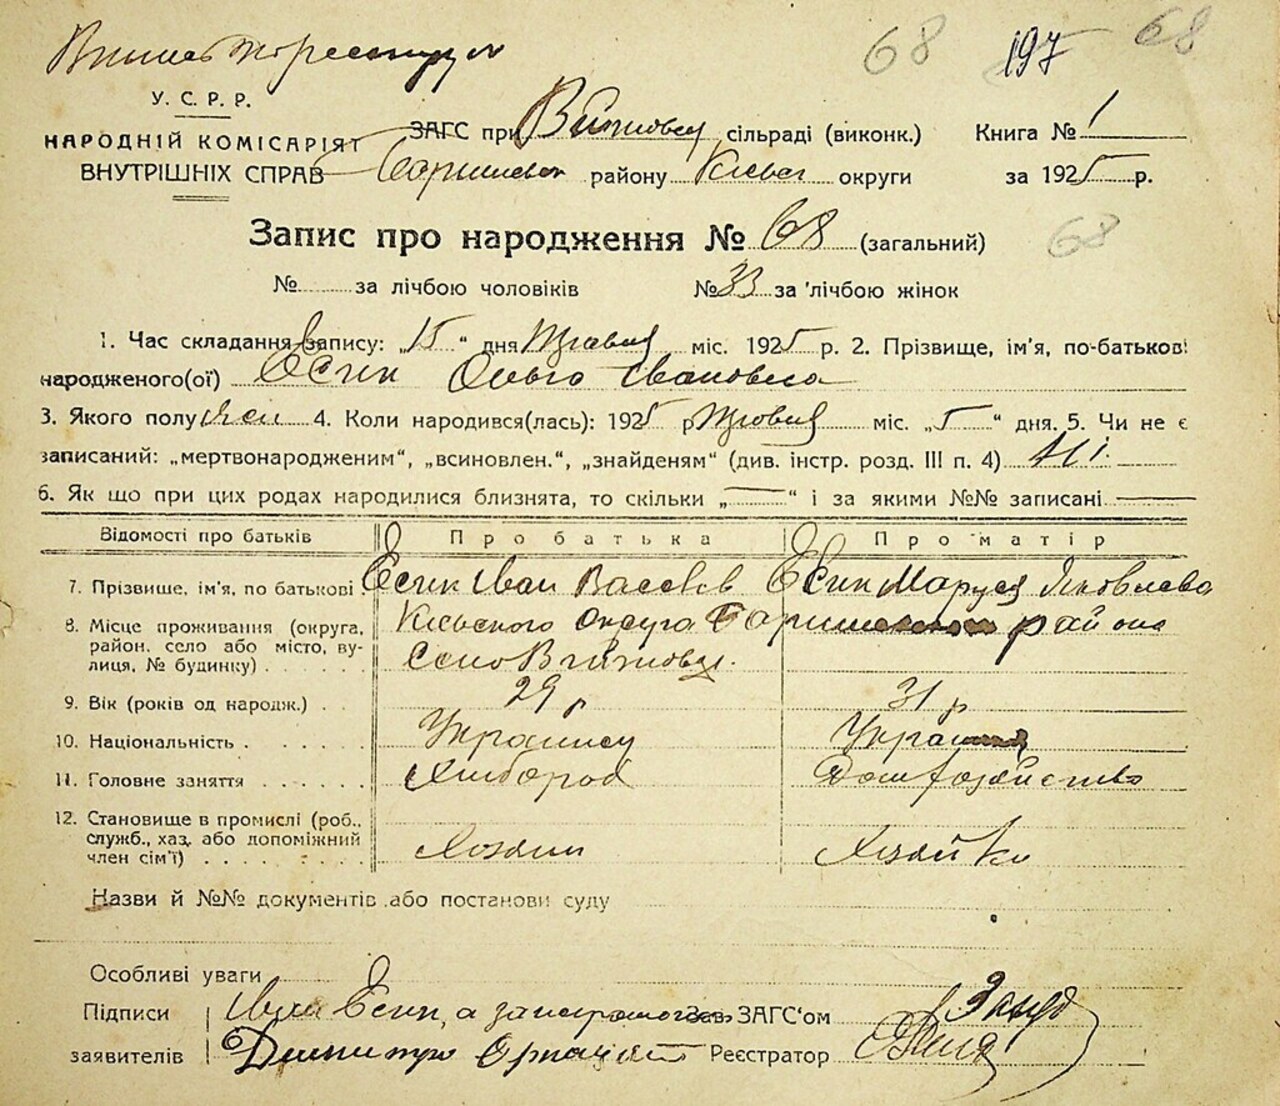 68 197 68
У. С. Р. Р.
НАРОДНІЙ КОМІСАРІЯТ
ВНУТРІШНІХ СПРАВ
ЗАГС при сільраді (виконк.) Книга № 1
району Київськ округи за 1925 р.
Запис про народження № 68 (загальний) 68
№ за лічбою чоловіків № 33 за лічбою жінок
1. Час складання запису: „15“ дня Травня міс. 1925 р. 2. Прізвище, ім'я, по-батькові
народженого(ої) Єсик Ольга Івановна
3. Якого полу жен 4. Коли народився(лась): 1925 р Травня міс. „5“ дня. 5. Чи не є
записаний: „мертвонародженим“, „всиновлен.“, „знайденям“ (див. інстр. розд. III п. 4) Ні
6. Як що при цих родах народилися близнята, то скільки „—“ і за якими №№ записані —
Відомості про батьків Про батька Про матір
7. Прізвище, ім'я, по батькові Єсик Іван Єсик Маруся Яковлева
8. Місце проживання (округа, район, село або місто, вулиця, № будинку) Київського округа района
Село
9. Вік (років од народж.) 29 р 31 р
10. Національність Українец
11. Головне заняття Хлібороб Домхозяйство
12. Становище в промислі (роб., служб., хаз. або допоміжний член сім'ї) Хозяин Хозяйка
Назви й №№ документів або постанови суду
Особливі уваги
Підписи Іван Єсик, а за Зав. ЗАГС'ом
заявителів Дмитро Реєстратор